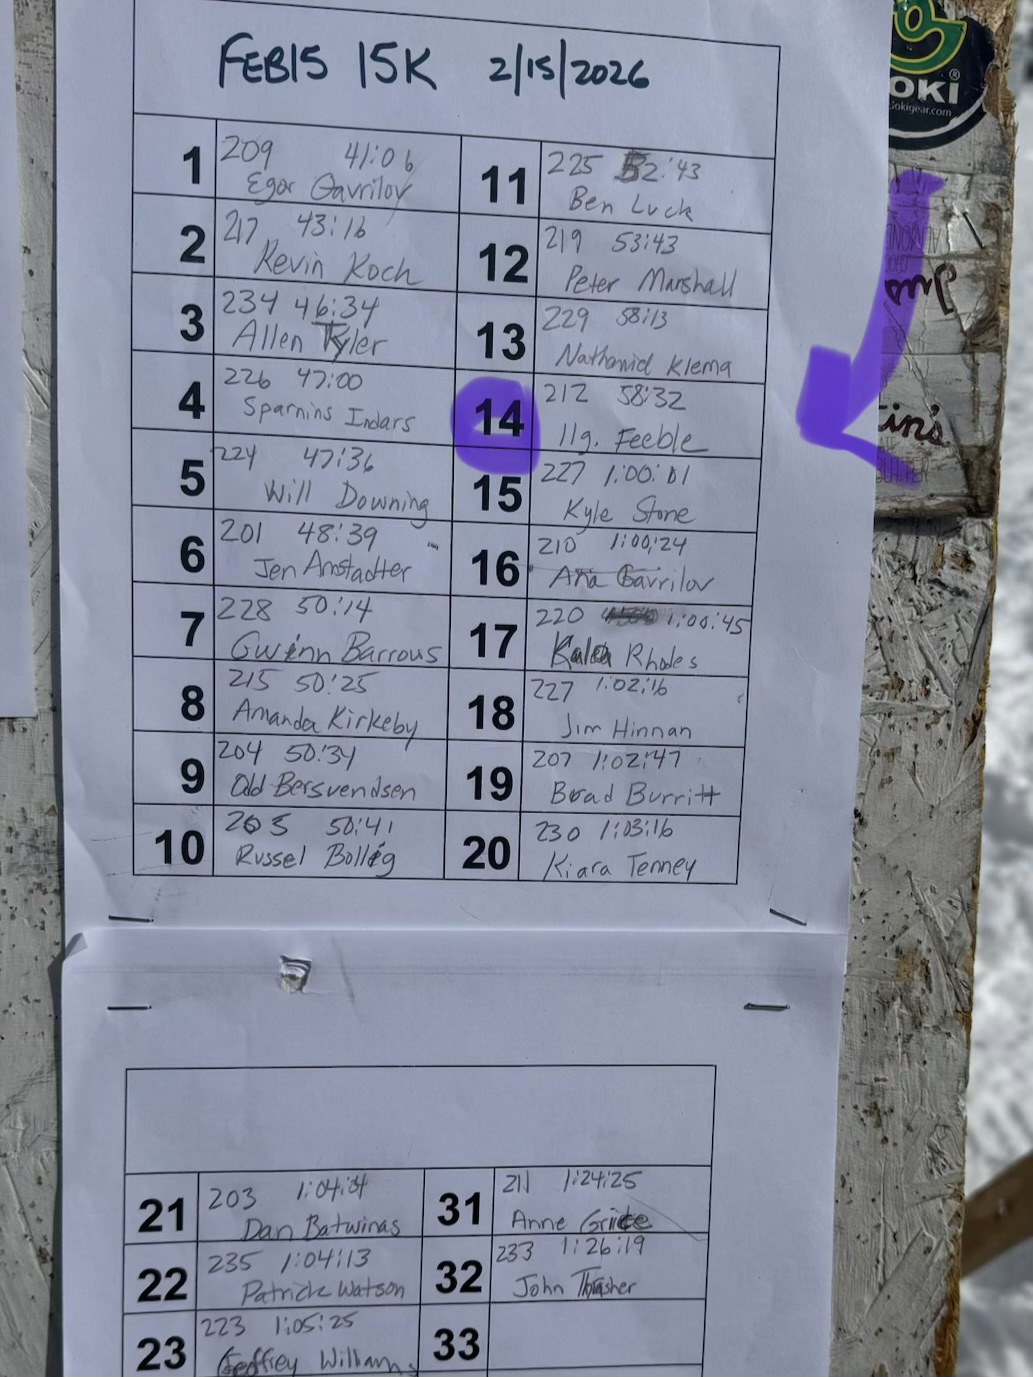 FEB15 15K 2/15/2026
1 209 41:06
Egor Gavrilov
2 217 43:16
Kevin Koch
3 234 46:34
Allen Tyler
4 226 47:00
Sparnins Indars
5 224 47:36
Will Downing
6 201 48:39
Jen Anstadter
7 228 50:14
Gwénn Barrous
8 215 50:25
Amanda Kirkeby
9 204 50:34
Odd Bersvendsen
10 205 50:41
Russel Bollig
11 225 52:43
Ben Luck
12 219 53:43
Peter Marshall
13 229 58:13
Nathaniel Klema
14 212 58:32
Ilg. Feeble
15 227 1:00:01
Kyle Stone
16 210 1:00:24
Ana Gavrilov
17 220 1:00:45
Rhodes
18 227 1:02:16
Jim Hinnan
19 207 1:02:47
Brad Burritt
20 230 1:03:16
Kiara Tenney
21 203
Dan Batwinas
22 235 1:04:13
Patrick Watson
23 223 1:05:25
Geoffrey Williams
31 211 1:24:25
Anne
32 233 1:26:19
John Thrasher
33
OKI
okigear.com
in's